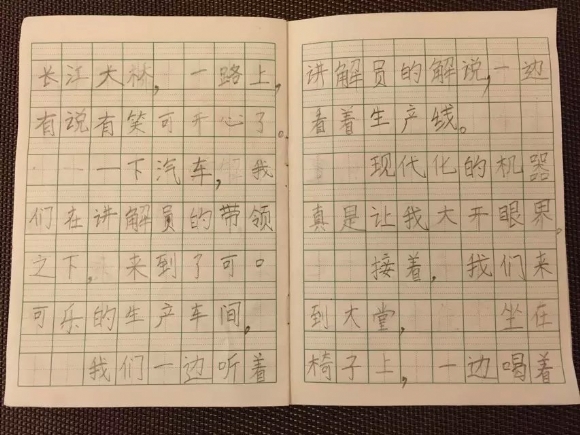 长江大桥，一路上，
有说有笑可开心了。
一下汽车，我
们在讲解员的带领
之下，来到了可口
可乐的生产车间，
我们一边听着
讲解员的解说，一边
看着生产线。
现代化的机器
真是让我大开眼界。
接着，我们来
到大堂，坐在
椅子上，一边喝着